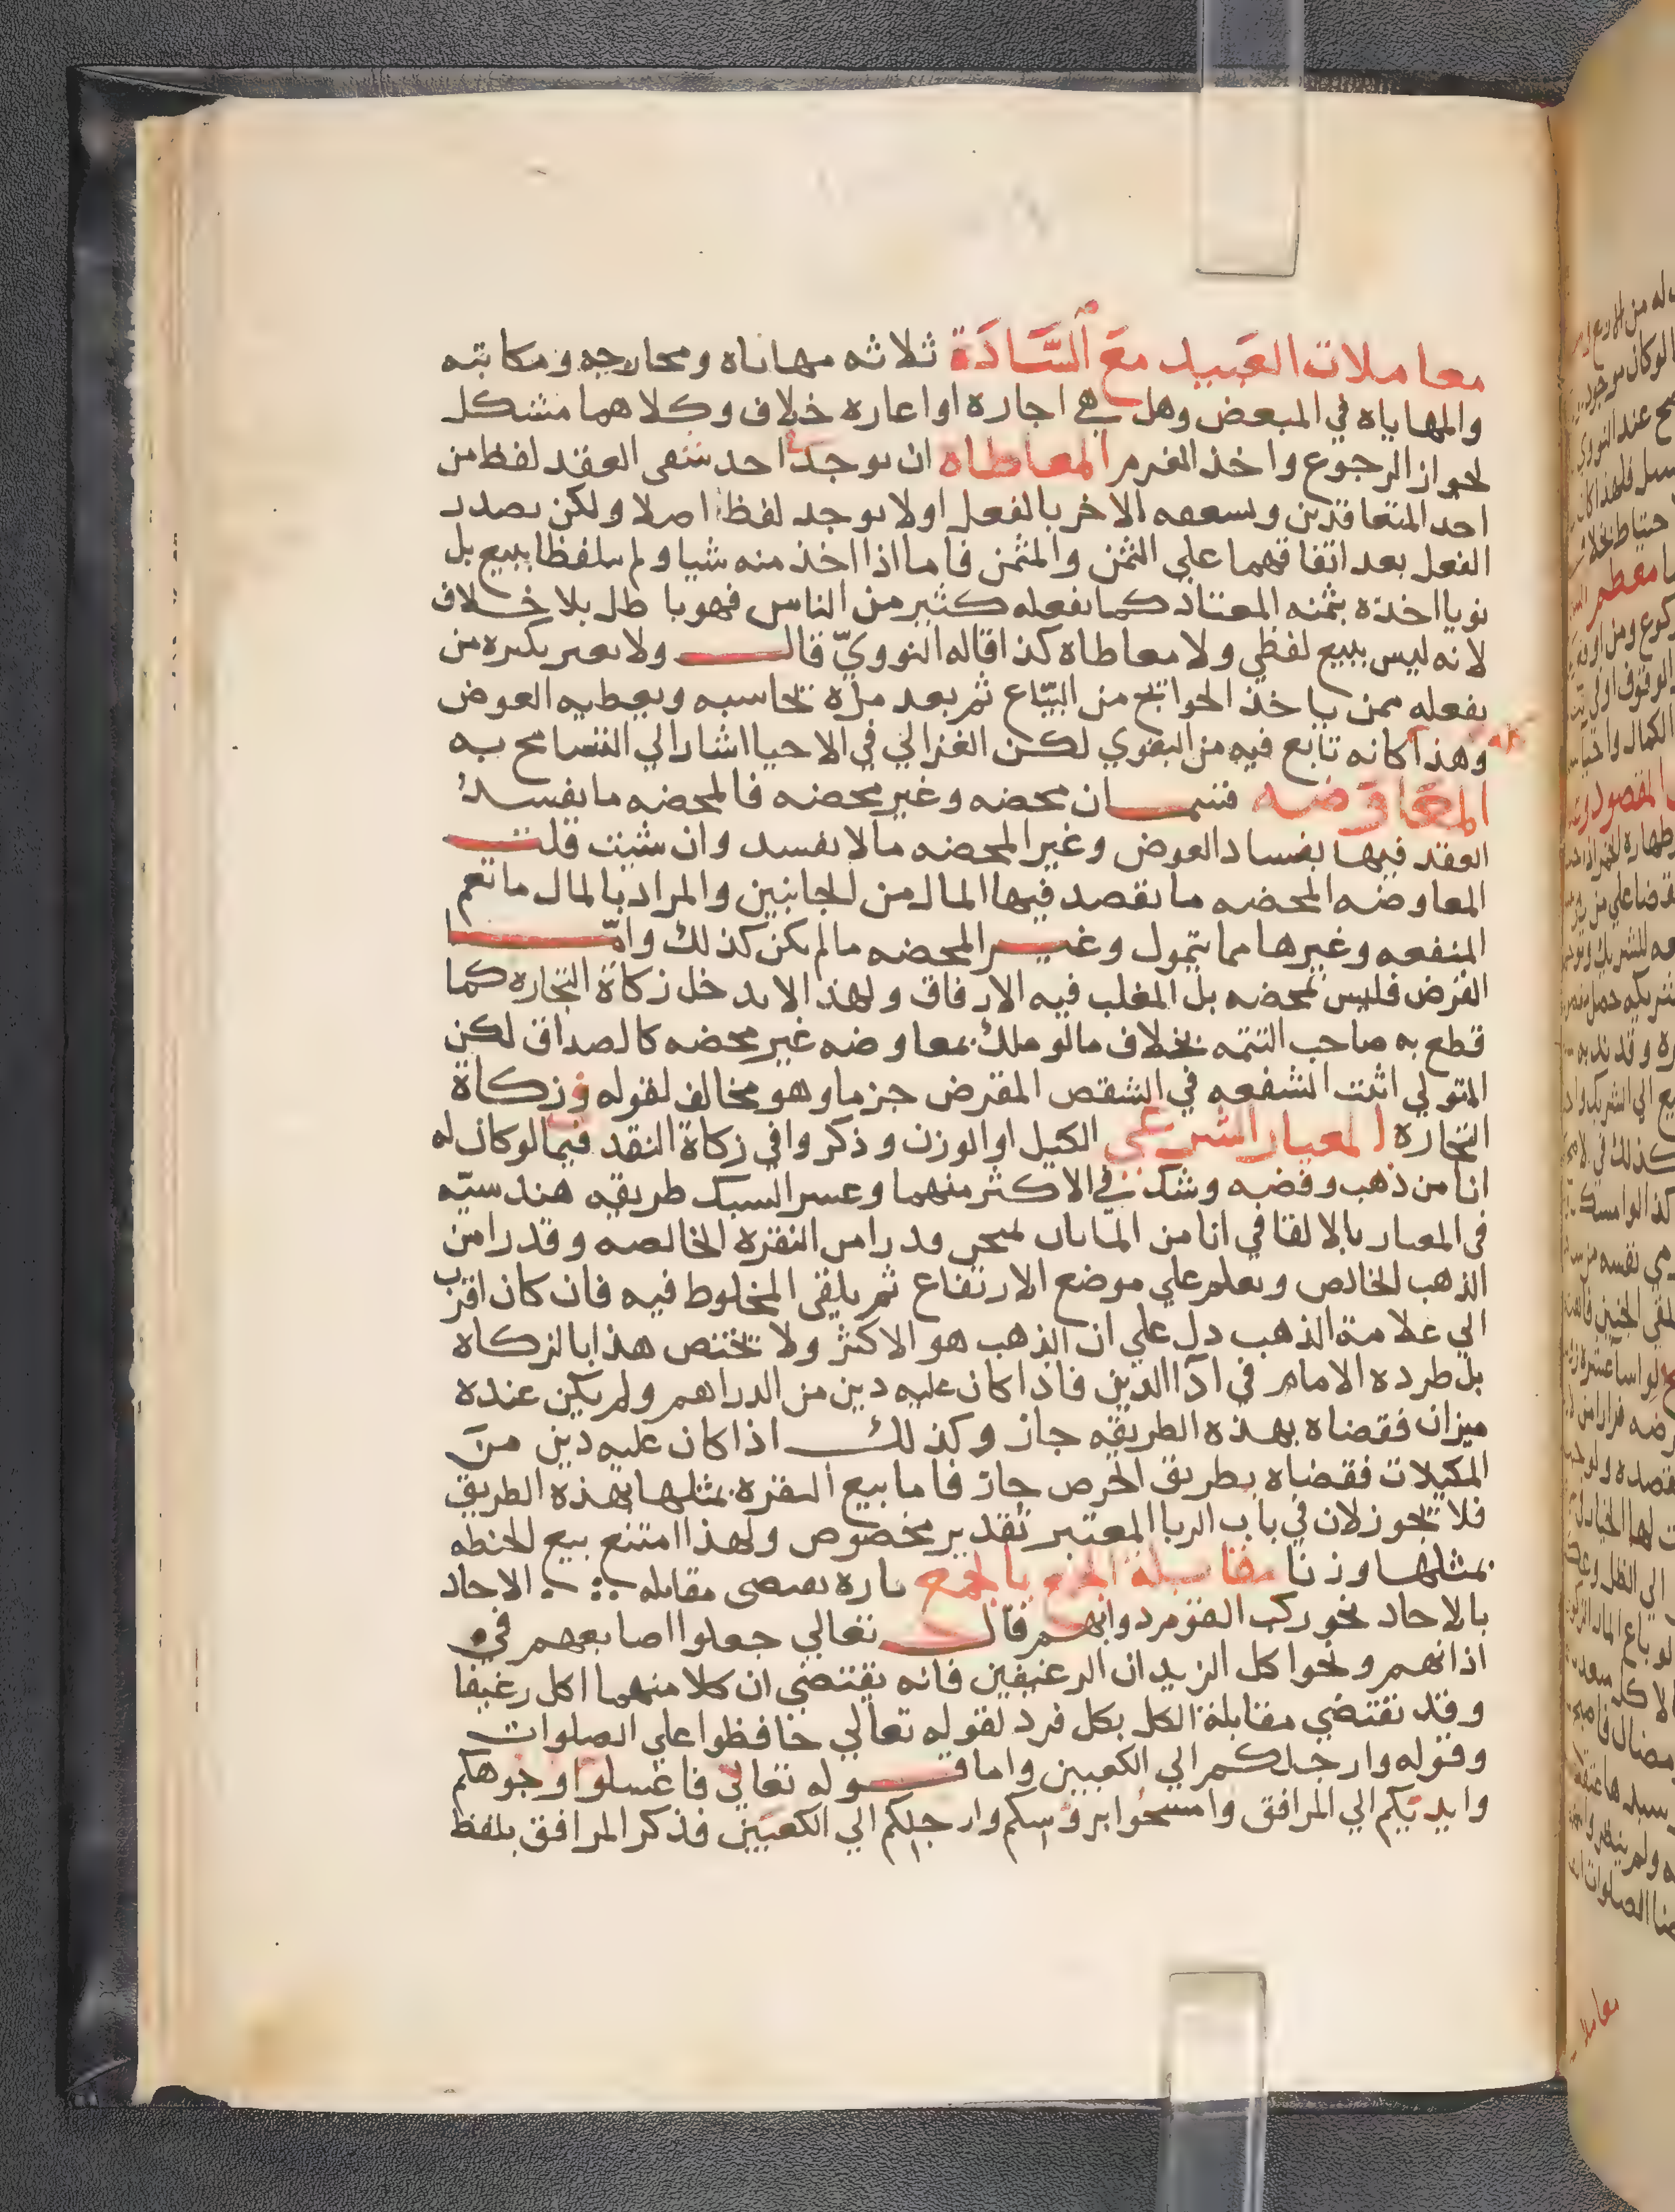 معاملات العبيد مع السادة ثلاثه مهاياه ومخارجه ومكاتبه
والمهاياه في المبعض وهل هي اجاره او اعاره خلاف وكلاهما مشكل
لجواز الرجوع واخذ الغرم المعاطاه ان يوجد احد شقي العقد لفظ من
احد المتعاقدين ويسعفه الاخر بالفعل او لا يوجد لفظ اصلا ولكن يصدر
الفعل بعد اتفاقهما علي الثمن والمثمن فاما اذا اخذ منه شيا ولم يتلفظا ببيع بل
نويا اخذه بثمنه المعتاد كما يفعله كثير من الناس فهو باطل بلا خلاف
لانه ليس ببيع لفظي ولا معاطاه كذا قاله النوويّ قال ولا يغتر بكثره من
يفعله ممن ياخذ الحوايج من البيّاع ثم بعد مدة يحاسبه ويعطيه العوض
وهذا كانه تابع فيه من البغوي لكن الغزالي في الاحيا اشار الي التسامح به
المعاوضه قسمان محضه وغير محضه فالمحضه ما يفسد
العقد فيها بفساد العوض وغير المحضه ما لا يفسد وان شيت قلت
المعاوضه المحضه ما يقصد فيها المال من الجانبين والمراد بالمال ما يعم
المنفعه وغيرها مما يتمول وغير المحضه ما لم يكن كذلك وامّا
القرض فليس بمحضه بل المغلب فيه الارفاق ولهذا لا يدخل زكاة التجاره كما
قطع به صاحب التتمه بخلاف ما لو ملك بمعاوضه غير محضه كالصداق لكن
المتولي اثبت الشفعه في الشقص المقرض جزما وهو مخالف لقوله في زكاة
التجاره المعيار الشرعي الكيل او الوزن وذكروا في زكاة النقد فيما لو كان له
انا من ذهب وفضه وشك في الاكثر منهما وعسر السبك طريقه هندسيّه
في المعيار بالالقا في انا من الما بان يمتحن قدرا من النقره الخالصه وقدرا من
الذهب الخالص ويعلم علي موضع الارتفاع ثم يلقي المخلوط فيه فان كان اقرب
الي علامة الذهب دل علي ان الذهب هو الاكثر ولا يختص هذا بالزكاه
بل طرده الامام في ادا الدين فاذا كان عليه دين من الدراهم ولم يكن عنده
ميزان فقضاه بهذه الطريقه جاز وكذلك اذا كان عليه دين من
المكيلات فقضاه بطريق الخرص جاز فاما بيع النقره بمثلها بهذه الطريق
فلا يجوز لان في باب الربا المعتبر تقدير مخصوص ولهذا امتنع بيع الحنطه
بمثلها وزنا مقابلة الجمع بالجمع تاره تقتضي مقابله الاحاد
بالاحاد نحو ركب القوم دوابهم قال تعالي جعلوا اصابعهم في
اذانهم ونحو اكل الزيدان الرغيفين فانه يقتضي ان كلا منهما اكل رغيفا
وقد تقتضي مقابلة الكل بكل فرد لقوله تعالي حافظوا علي الصلوات
وقوله وارجلكم الي الكعبين واما قوله تعالي فاغسلوا وجوهكم
وايديكم الي المرافق وامسحوا برؤسكم وارجلكم الي الكعبين فذكر المرافق بلفظ